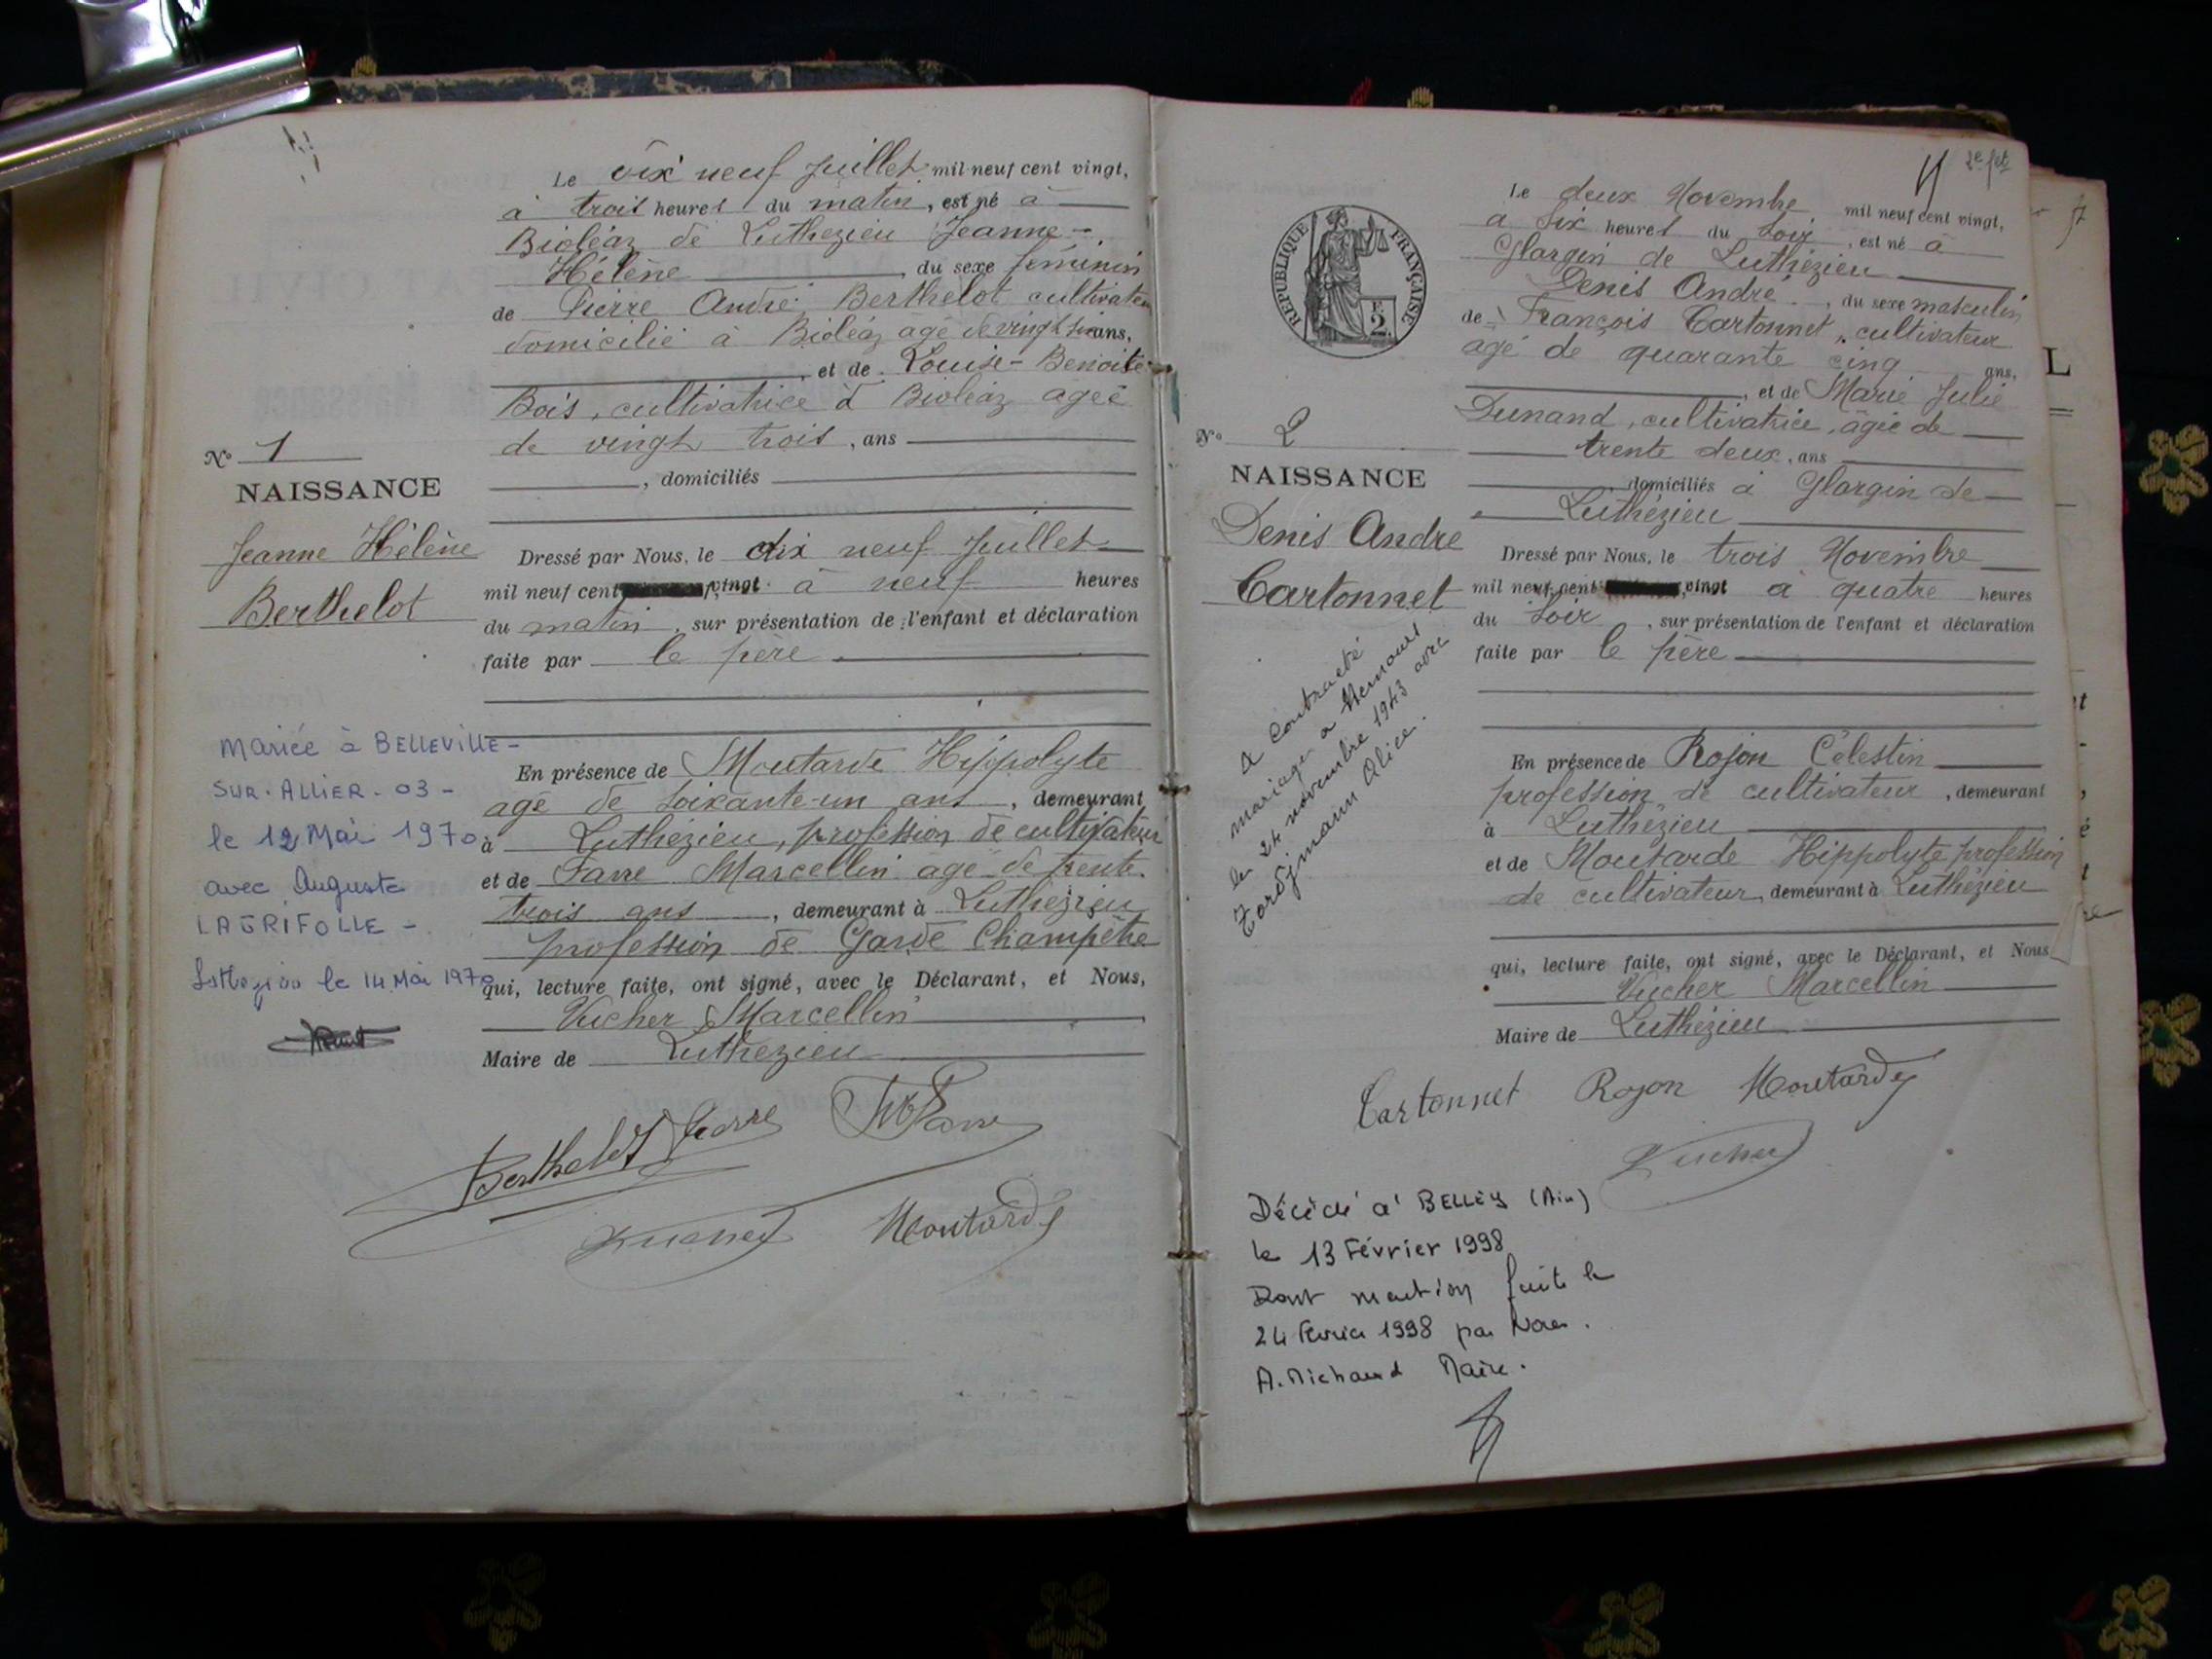 Le dix neuf Juillet mil neuf cent vingt,
à trois heures du matin, est né à
Bioléaz de Luthezieu Jeanne-
Hélène, du sexe féminin
de Pierre André Berthelot cultivateur
domicilié à Bioléaz agé de vingt six ans,
et de Louise-Benoite
Bois, cultivatrice à Bioléaz agée
de vingt trois, ans
, domiciliés
N° 1
NAISSANCE
Jeanne Hélène
Berthelot
Dressé par Nous, le dix neuf Juillet
mil neuf cent vingt à neuf heures
du matin, sur présentation de l'enfant et déclaration
faite par le père
Mariée à BELLEVILLE-
SUR-ALLIER-03-
le 12 Mai 1970
avec Auguste
LAGRIFOLLE-
le 14 Mai 1970
En présence de Moutarde Hippolyte
agé de soixante-un ans, demeurant
à Luthézieu, profession de cultivateur
et de Favre Marcellin agé de trente-
trois ans, demeurant à Luthézieu
profession de Garde Champêtre
qui, lecture faite, ont signé, avec le Déclarant, et Nous,
Vucher Marcellin
Maire de Luthezieu
Berthelot Pierre Favre
Vucher Moutarde
2e fet
Le deux Novembre mil neuf cent vingt,
à six heures du soir, est né à
Glargin de Luthézieu
Denis André, du sexe masculin
de François Cartonnet, cultivateur
agé de quarante cinq ans,
et de Marie Julie
Dunand, cultivatrice, âgée de
trente deux, ans
domiciliés à Glargin de
Luthézieu
REPUBLIQUE FRANÇAISE
2
N° 2
NAISSANCE
Denis Andre
Cartonnet
Dressé par Nous, le trois Novembre
mil neuf cent vingt à quatre heures
du soir, sur présentation de l'enfant et déclaration
faite par le père
A contracté
mariage à
le 24 novembre 1943 avec
Tordjmann Alice.
En présence de Rojon Célestin
profession de cultivateur, demeurant
à Luthézieu
et de Moutarde Hippolyte profession
de cultivateur, demeurant à Luthézieu
qui, lecture faite, ont signé, avec le Déclarant, et Nous
Vucher Marcellin
Maire de Luthézieu
Cartonnet Rojon Moutarde
Vucher
Décédé à BELLEY (Ain)
le 13 Février 1998
Dont mention faite le
24 Février 1998 par Nous.
A. Michaud Maire.